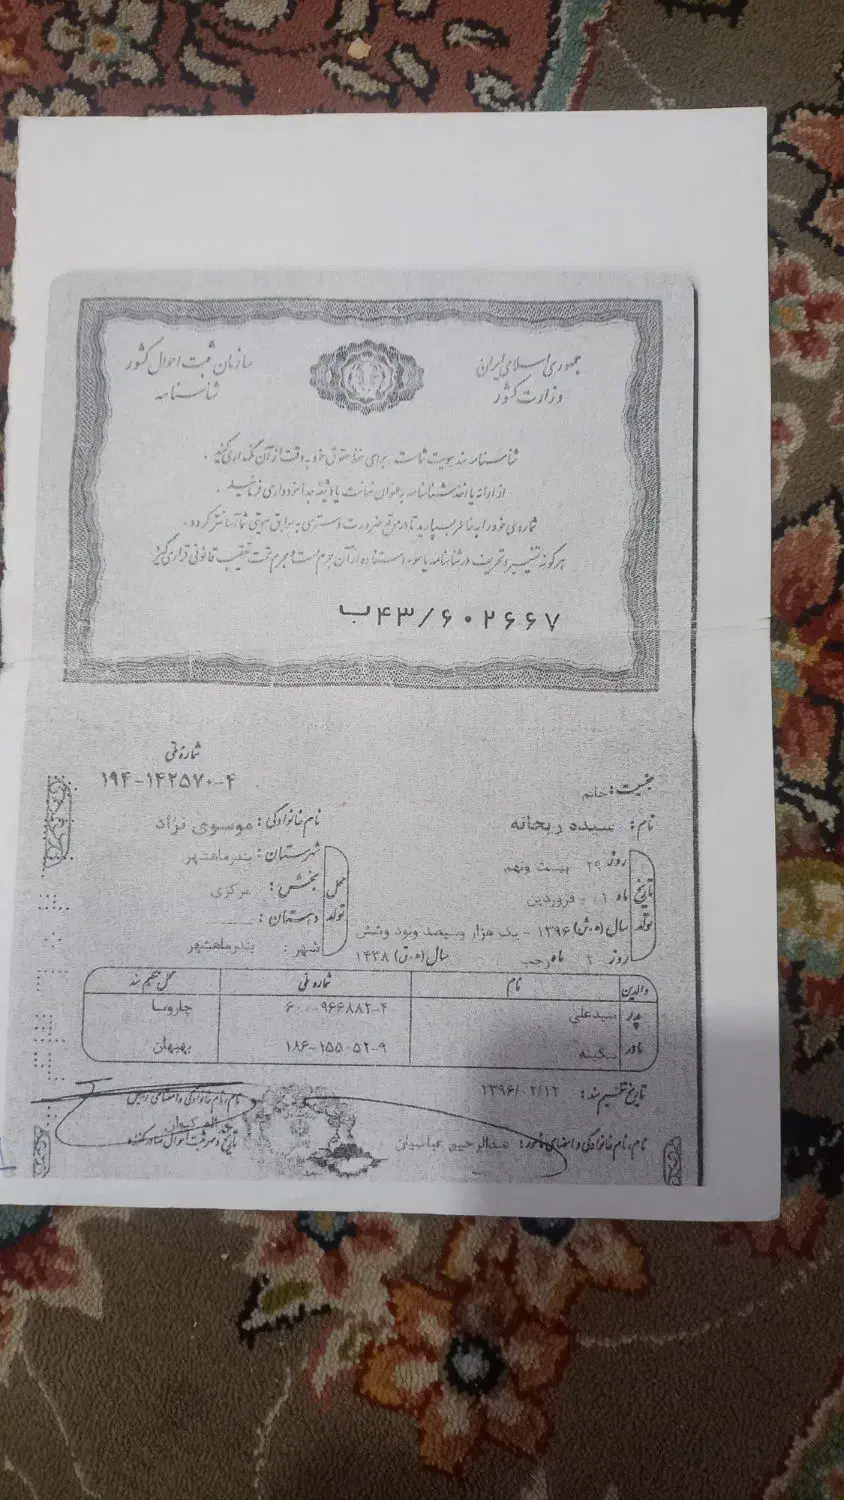 جمهوری اسلامی ایران
وزارت کشور
سازمان ثبت احوال کشور
شناسنامه
شناسنامه سند هویت شماست. برای حفظ حقوق خود به دقت از آن نگهداری کنید.
از ارائه یا اخذ شناسنامه به عنوان ضمانت یا وثیقه جداً خودداری فرمائید.
شماره‌ی خود را به خاطر بسپارید تا در مواقع ضرورت دسترسی به سوابق هویتی شما آسانتر گردد.
هر گونه تغییر و تحریف در شناسنامه یا سوء استفاده از آن جرم است و مجرم تحت تعقیب قانونی قرار می‌گیرد.
ب۴۳/۶۰۲۶۶۷
شماره ملی
۱۹۴-۱۴۲۵۷۰-۴
جنسیت: خانم
نام: سیده ریحانه
نام خانوادگی: موسوی نژاد
تاریخ تولد
روز ۲۹ بیست ونهم
ماه ۱ - فروردین
سال (ه.ش) ۱۳۹۶ - یک هزار وسیصد ونود وشش
روز ۲ ماه رجب سال (ه.ق) ۱۴۳۸
محل تولد
شهرستان: بندرماهشهر
بخش: مرکزی
دهستان:
شهر: بندرماهشهر
والدین نام شماره ملی محل تنظیم سند
پدر سیدعلی چاروسا
مادر سکینه ۱۸۶-۱۵۵۰۵۲-۹ بهبهان
تاریخ تنظیم سند: ۱۳۹۶/۰۲/۱۲
نام، نام خانوادگی و امضای مامور: عبدالرحیم عباسیان
نام، نام خانوادگی و امضای رئیس